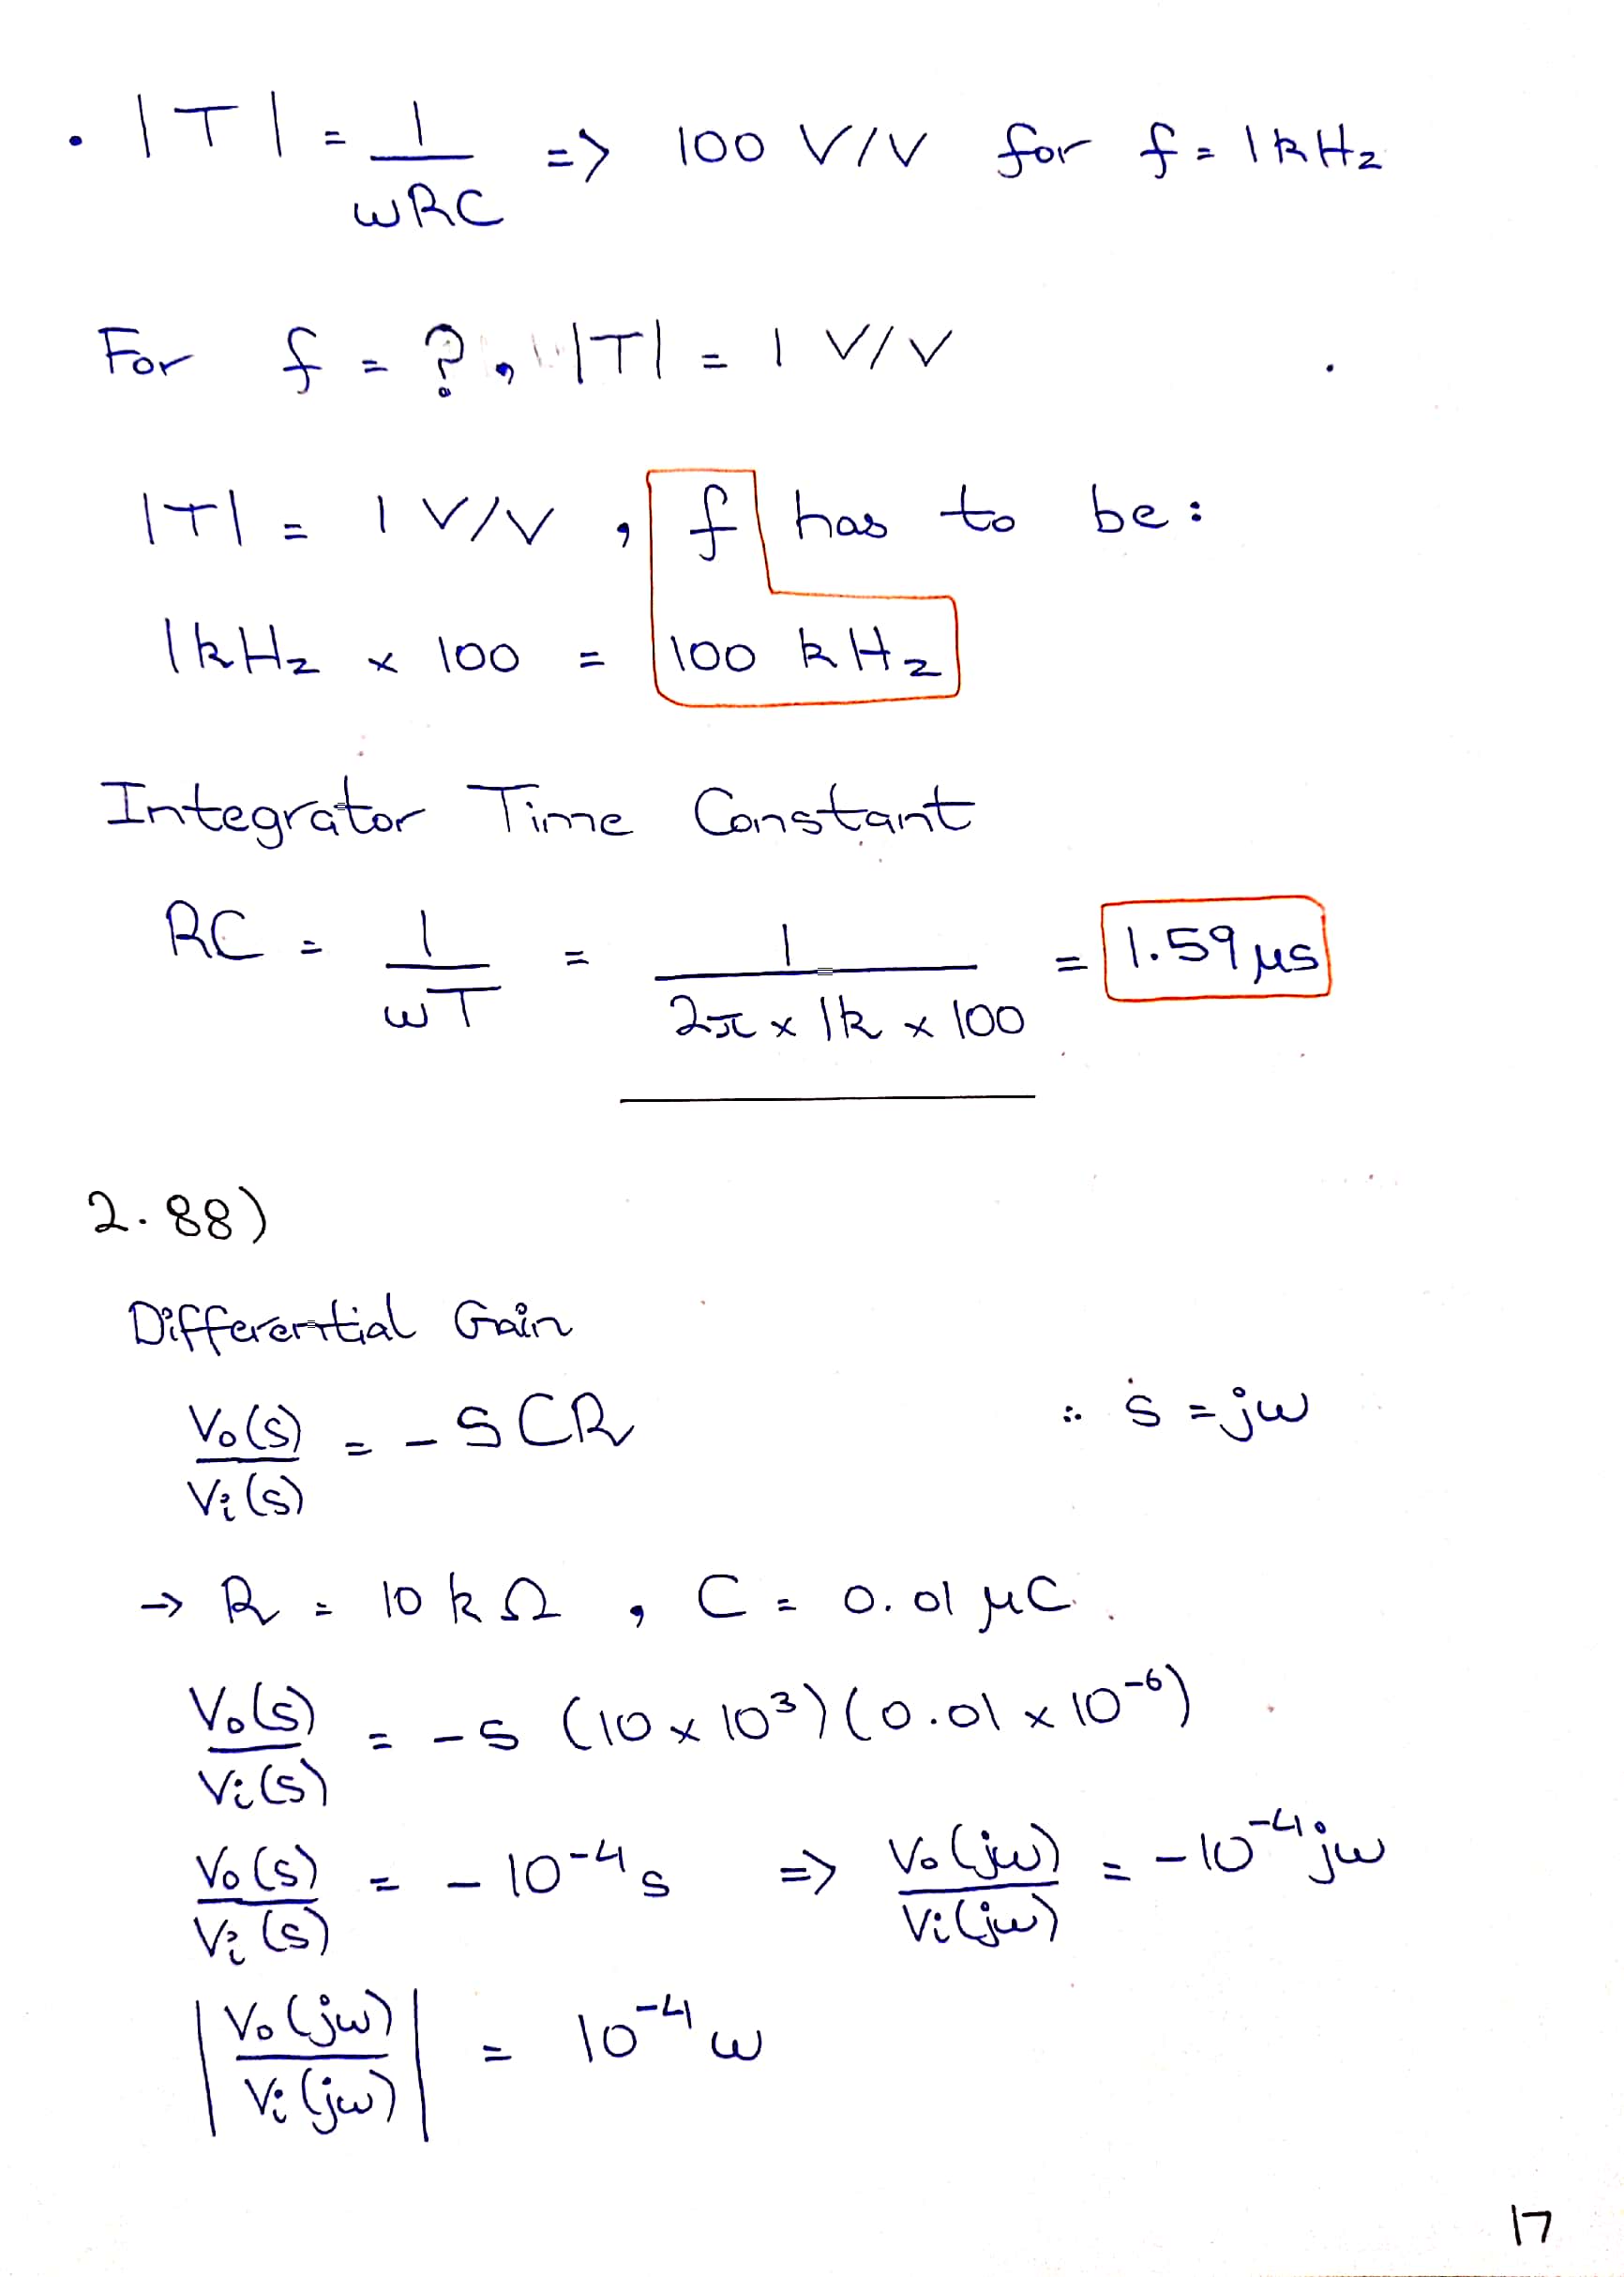 • |T| = 1/ωRC => 100 V/V for f = 1kHz
For f = ?, |T| = 1 V/V
|T| = 1 V/V, f has to be:
1kHz × 100 = 100 kHz
Integrator Time Constant
RC = 1/ωT = 1/(2π × 1k × 100) = 1.59 μs
2.88)
Differential Gain
Vo(s)/Vi(s) = -SCR ∴ s = jω
→ R = 10 kΩ, C = 0.01 μC.
Vo(s)/Vi(s) = -s (10 × 10³)(0.01 × 10⁻⁶)
Vo(s)/Vi(s) = -10⁻⁴s => Vo(jω)/Vi(jω) = -10⁻⁴jω
|Vo(jω)/Vi(jω)| = 10⁻⁴ω
17